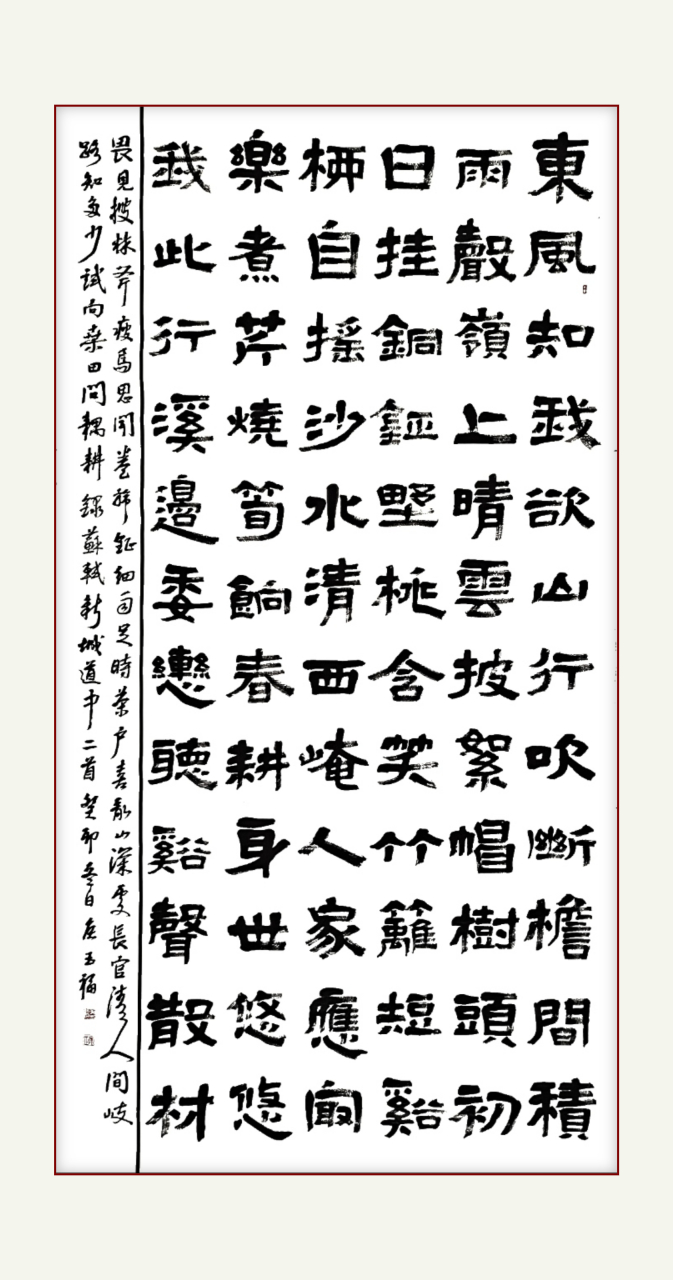 東風知我欲山行吹斷檐間積
雨聲嶺上晴雲披絮帽樹頭初
日挂銅鉦野桃含笑竹籬短谿
柳自搖沙水清西崦人家應㝡
樂煮芹燒筍餉春耕身世悠悠
我此行溪邊委轡聽谿聲散材
畏見搜林斧疲馬思聞卷旆鉦細雨足時茶戶喜亂山深處長官清人間岐
路知多少試向桑田問耦耕 錄蘇軾新城道中二首 癸卯冬日